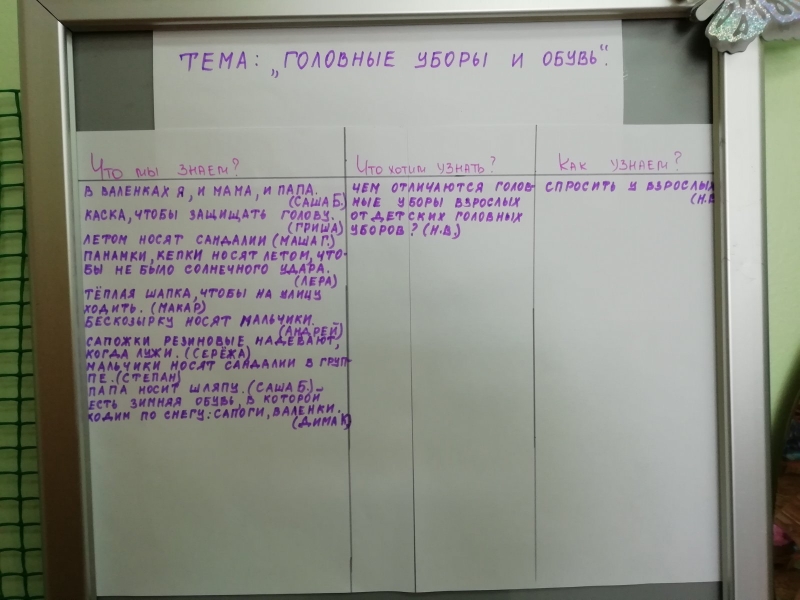 ТЕМА: „ГОЛОВНЫЕ УБОРЫ И ОБУВЬ“.
Что мы знаем?
В ВАЛЕНКАХ Я, И МАМА, И ПАПА.
(САША Б.)
КАСКА, ЧТОБЫ ЗАЩИЩАТЬ ГОЛОВУ.
(ГРИША)
ЛЕТОМ НОСЯТ САНДАЛИИ (МАША Г.)
ПАНАМКИ, КЕПКИ НОСЯТ ЛЕТОМ, ЧТО-
БЫ НЕ БЫЛО СОЛНЕЧНОГО УДАРА.
(ЛЕРА)
ТЁПЛАЯ ШАПКА, ЧТОБЫ НА УЛИЦУ
ХОДИТЬ. (МАКАР)
БЕСКОЗЫРКУ НОСЯТ МАЛЬЧИКИ.
(АНДРЕЙ)
САПОЖКИ РЕЗИНОВЫЕ НАДЕВАЮТ,
КОГДА ЛУЖИ. (СЕРЁЖА)
МАЛЬЧИКИ НОСЯТ САНДАЛИИ В ГРУП-
ПЕ. (СТЕПАН)
ПАПА НОСИТ ШЛЯПУ. (САША Б.)
ЕСТЬ ЗИМНЯЯ ОБУВЬ, В КОТОРОЙ
ХОДИМ ПО СНЕГУ: САПОГИ, ВАЛЕНКИ.
(ДИМА К)
Что хотим узнать?
ЧЕМ ОТЛИЧАЮТСЯ ГОЛОВ-
НЫЕ УБОРЫ ВЗРОСЛЫХ
ОТ ДЕТСКИХ ГОЛОВНЫХ
УБОРОВ? (Н.В.)
Как узнаем?
СПРОСИТЬ У ВЗРОСЛЫХ
(Н.В